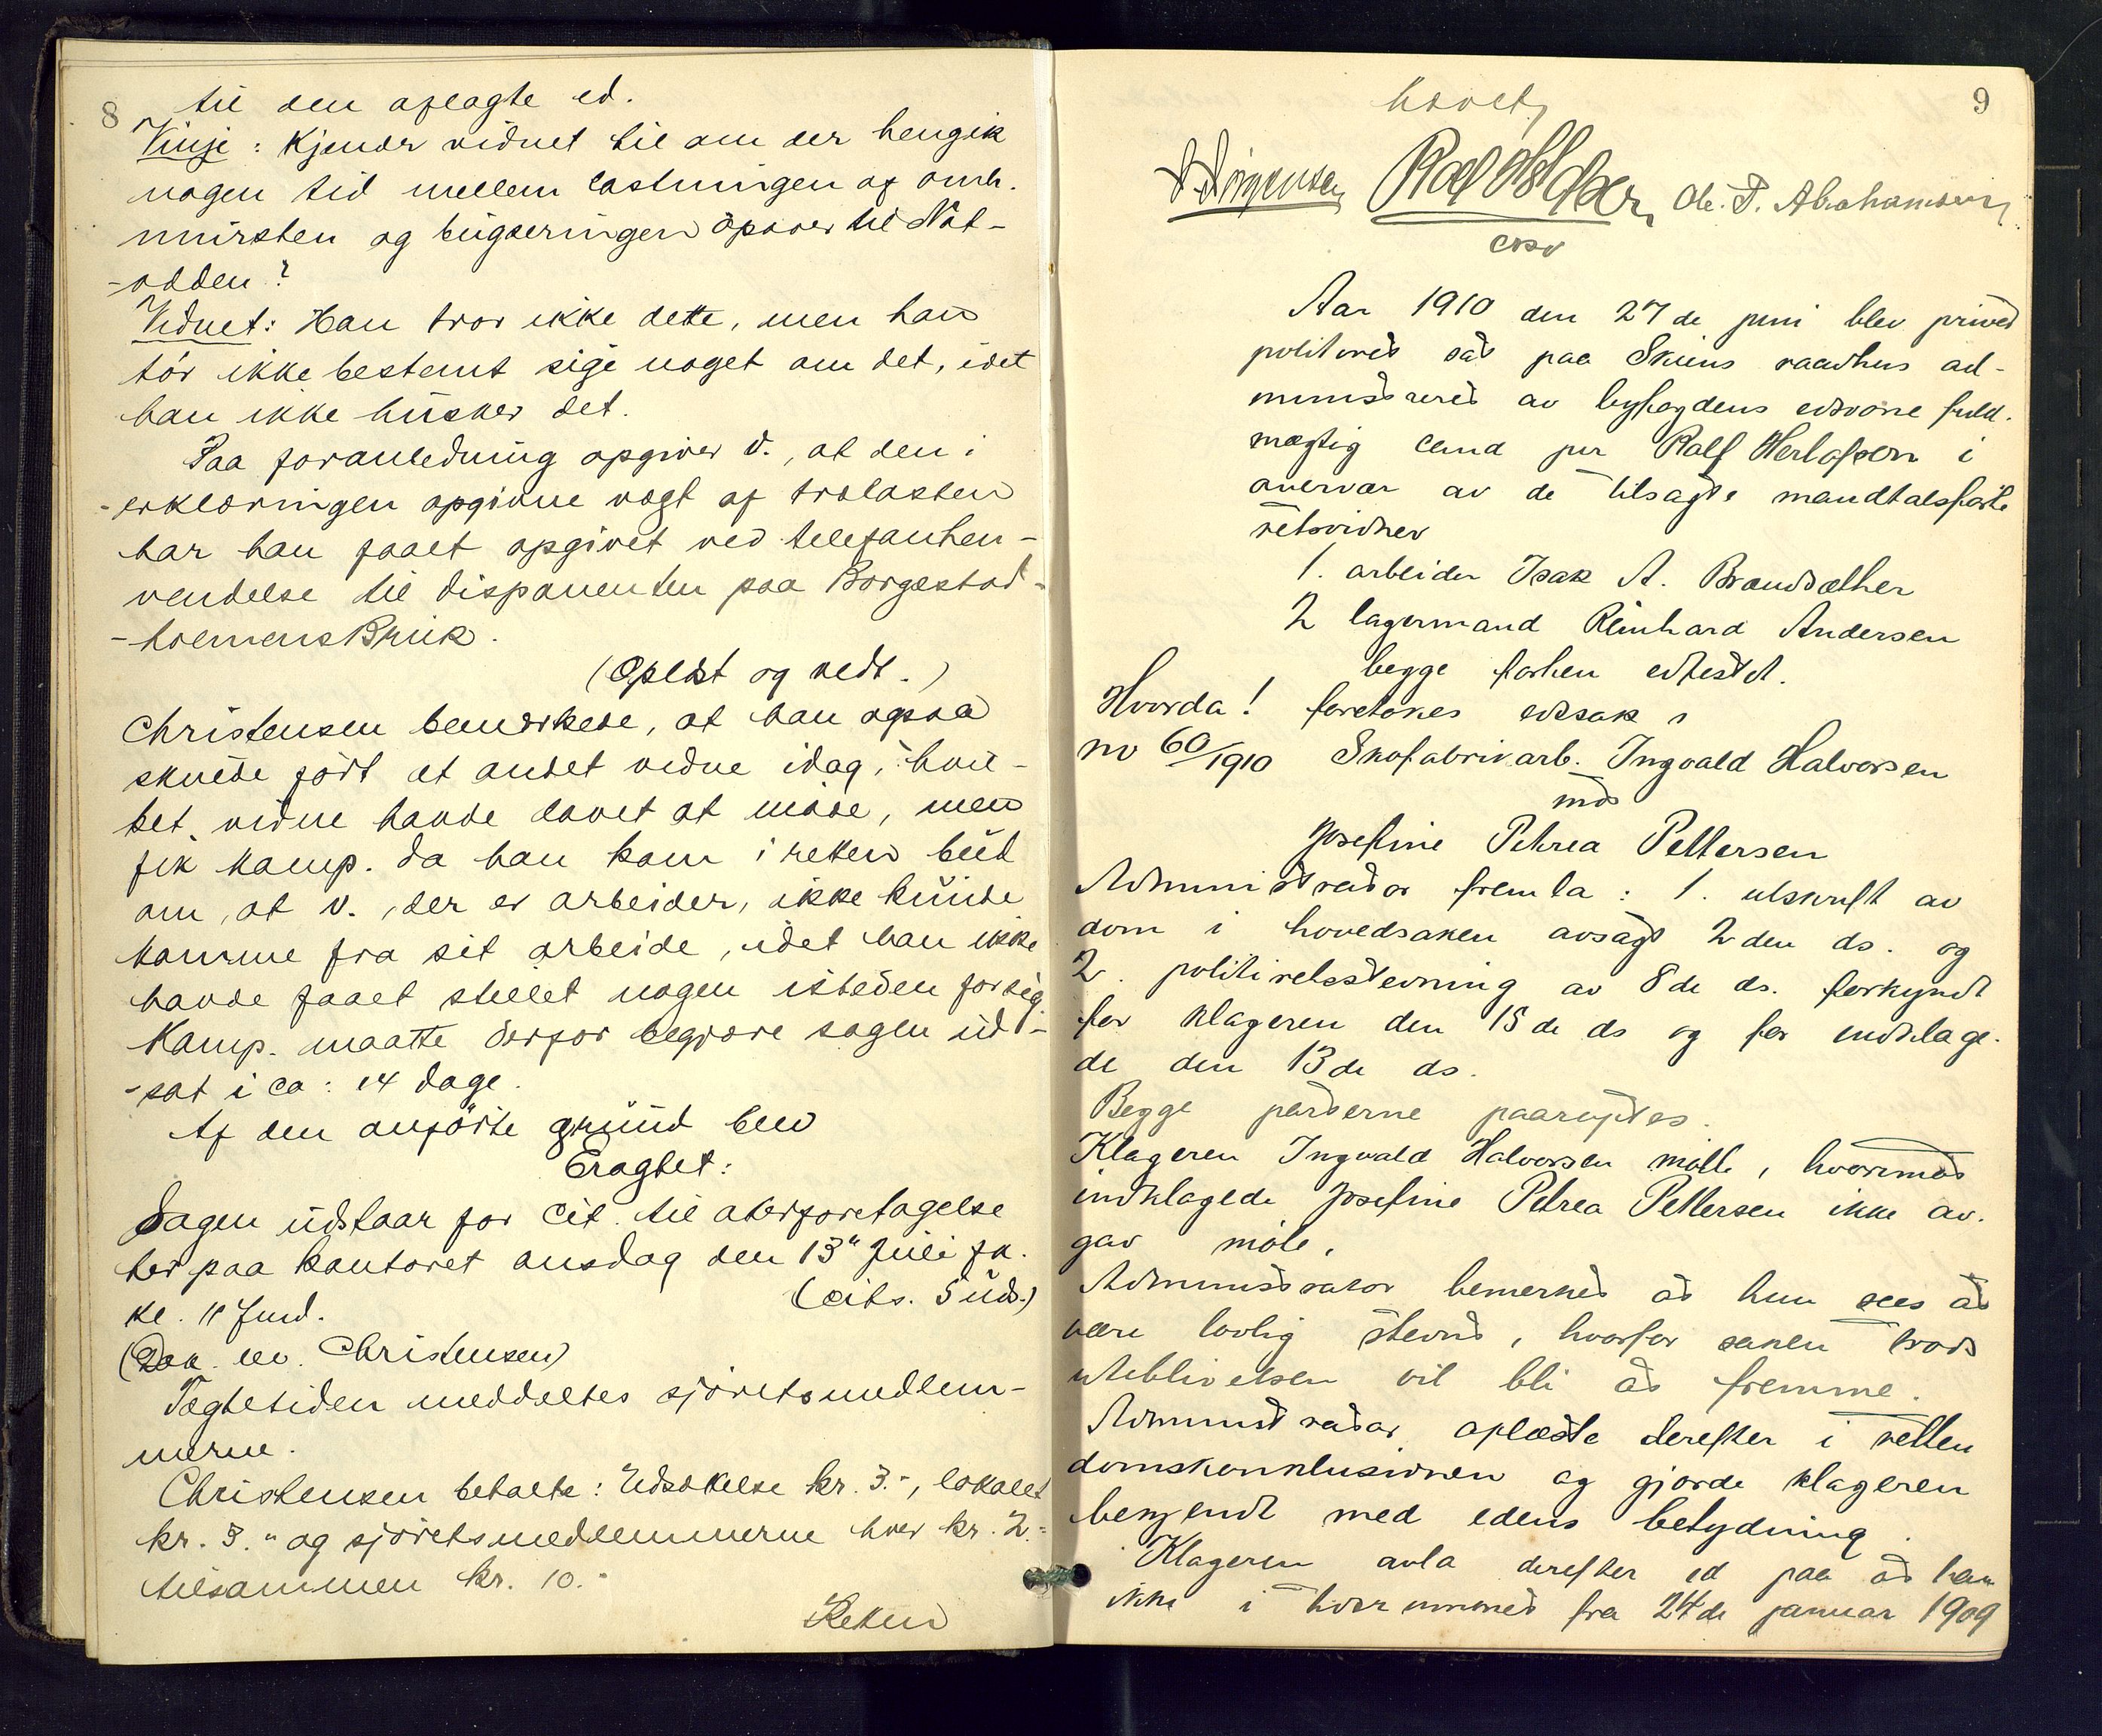 8
til den aflagte ed.
Vinje: Kjender vidnet til om der hengik
nogen tid mellem lastningen af omh.
mursten og bugseringen opover til Not-
-odden?
Vidnet: Han tror ikke dette, men han
tör ikke bestemt sige noget om det, idet
han ikke husker det.
Paa foranledning opgiver v., at den i
-erklæringen opgivne vægt af trælasten
har han faaet opgivet ved telefonhen-
vendelse til disponenten paa Borgestad-
-holmens Bruk.
(Oplæst og vedt.)
Christensen bemærkede, at han ogsaa
skulde fört et andet vidne idag, hvil-
ket vidne havde lovet at möde, men
fik komp. da han kom i retten bud
om, at v., der er arbeider, ikke kunde
komme fra sit arbeide, idet han ikke
havde faaet stillet nogen isteden for sig.
Komp. maatte derfor begjære sagen ud-
-sat i ca: 14 dage.
Af den anförte grund blev
Eragtet:
Sagen udstaar for Cit. til aterforetagelse
her paa kontoret onsdag den 13" Juli fk.
kl. 11 Fmd. (Cits. 5 uds.)
(Dok. lev. Christensen)
Tægtetiden meddeltes sjöretsmedlem-
merne.
Christensen betalte: Udsættelse kr. 3.-, lokalet
kr. 3." og sjöretsmedlemmerne hver kr. 2.=
tilsammen kr. 10.-
Retten
9
hævet,
J. Jörgensen Ralf Herlofsen Ole. T. Abrahamsen
cso
Aar 1910 den 27de juni blev privat
politiret sat paa Skiens raadhus ad-
ministreret av byfogdens edsvorne fuld-
mægtig cand jur Ralf Herlofson i
overvær av de tilsagte mandtalsførte
retsvidner
1. arbeider Isak A. Brandsæther
2 lagermand Reinhard Andersen
begge forhen edfestet.
Hvorda! foretokes edssak i
no 60/1910 Skofabrikarb. Ingvald Halvorsen
mot
Josefine Petrea Pettersen
Administrator fremla: 1. utskrift av
dom i hovedsaken avsagt 2den ds. og
2. politiretsstevning av 8de ds. forkyndt
for klageren den 15de ds og for indklage-
de den 13de ds.
Begge parterne paaroptes.
Klageren Ingvald Halvorsen møtte, hvorimot
indklagede Josefine Petrea Pettersen ikke av-
gav møte,
Administrator bemerket at hun sees at
være lovlig stevnt, hvorfor saken trods
uteblivelsen vil bli at fremme.
Administrator oplæste derefter i retten
domskonklusionen og gjorde klageren
bekjendt med edens betydning.
Klageren avla derefter ed paa at han
ikke i tidsrummet fra 24de januar 1909